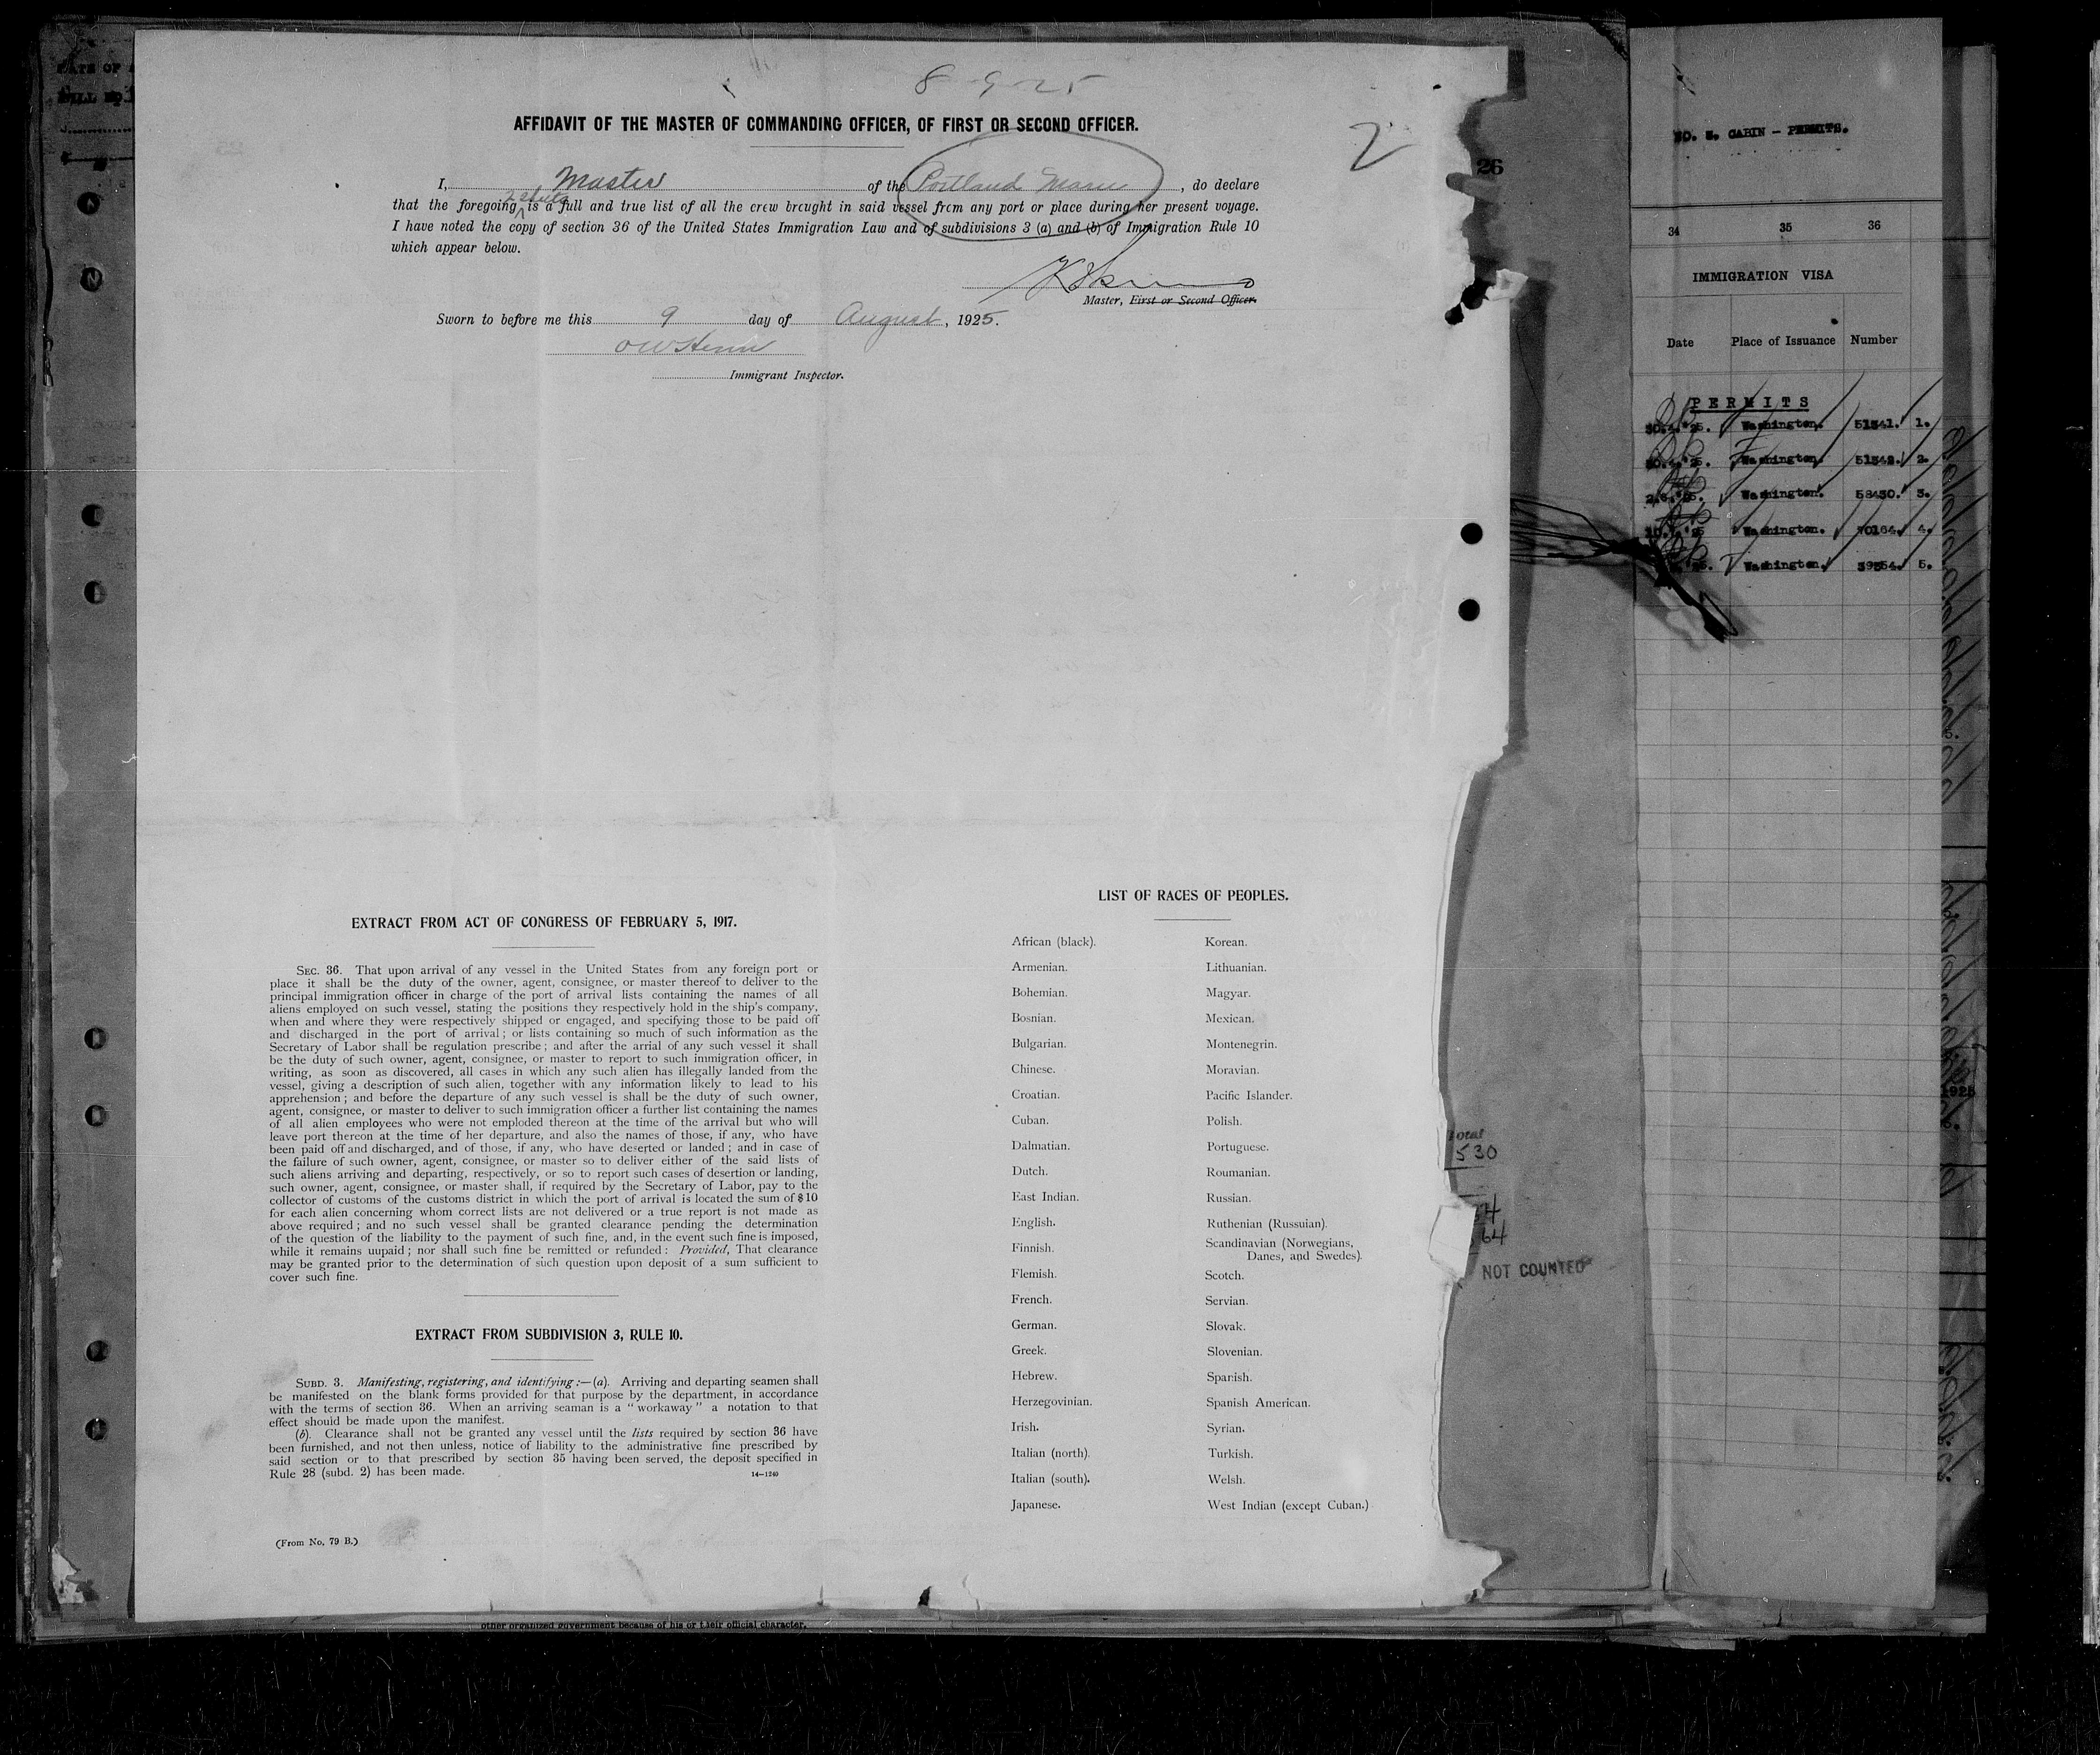 8-9-25
AFFIDAVIT OF THE MASTER OF COMMANDING OFFICER, OF FIRST OR SECOND OFFICER.
2
I, Master of the Portland Maru, do declare
2 sheets
that the foregoing is a full and true list of all the crew brought in said vessel from any port or place during her present voyage.
I have noted the copy of section 36 of the United States Immigration Law and of subdivisions 3 (a) and (b) of Immigration Rule 10
which appear below.
Master, First or Second Officer.
Sworn to before me this 9 day of August, 1925.
Immigrant Inspector.
EXTRACT FROM ACT OF CONGRESS OF FEBRUARY 5, 1917.
SEC. 36. That upon arrival of any vessel in the United States from any foreign port or
place it shall be the duty of the owner, agent, consignee, or master thereof to deliver to the
principal immigration officer in charge of the port of arrival lists containing the names of all
aliens employed on such vessel, stating the positions they respectively hold in the ship's company,
when and where they were respectively shipped or engaged, and specifying those to be paid off
and discharged in the port of arrival; or lists containing so much of such information as the
Secretary of Labor shall be regulation prescribe; and after the arrial of any such vessel it shall
be the duty of such owner, agent, consignee, or master to report to such immigration officer, in
writing, as soon as discovered, all cases in which any such alien has illegally landed from the
vessel, giving a description of such alien, together with any information likely to lead to his
apprehension; and before the departure of any such vessel is shall be the duty of such owner,
agent, consignee, or master to deliver to such immigration officer a further list containing the names
of all alien employees who were not emploded thereon at the time of the arrival but who will
leave port thereon at the time of her departure, and also the names of those, if any, who have
been paid off and discharged, and of those, if any, who have deserted or landed; and in case of
the failure of such owner, agent, consignee, or master so to deliver either of the said lists of
such aliens arriving and departing, respectively, or so to report such cases of desertion or landing,
such owner, agent, consignee, or master shall, if required by the Secretary of Labor, pay to the
collector of customs of the customs district in which the port of arrival is located the sum of $10
for each alien concerning whom correct lists are not delivered or a true report is not made as
above required; and no such vessel shall be granted clearance pending the determination
of the question of the liability to the payment of such fine, and, in the event such fine is imposed,
while it remains uupaid; nor shall such fine be remitted or refunded: Provided, That clearance
may be granted prior to the determination of such question upon deposit of a sum sufficient to
cover such fine.
EXTRACT FROM SUBDIVISION 3, RULE 10.
SUBD. 3. Manifesting, registering, and identifying:—(a). Arriving and departing seamen shall
be manifested on the blank forms provided for that purpose by the department, in accordance
with the terms of section 36. When an arriving seaman is a "workaway" a notation to that
effect should be made upon the manifest.
(b). Clearance shall not be granted any vessel until the lists required by section 36 have
been furnished, and not then unless, notice of liability to the administrative fine prescribed by
said section or to that prescribed by section 35 having been served, the deposit specified in
Rule 28 (subd. 2) has been made. 14—1240
(From No. 79 B.)
LIST OF RACES OF PEOPLES.
African (black). Korean.
Armenian. Lithuanian.
Bohemian. Magyar.
Bosnian. Mexican.
Bulgarian. Montenegrin.
Chinese. Moravian.
Croatian. Pacific Islander.
Cuban. Polish.
Dalmatian. Portuguese.
Dutch. Roumanian.
East Indian. Russian.
English. Ruthenian (Russuian).
Finnish. Scandinavian (Norwegians,
Danes, and Swedes).
Flemish. Scotch.
French. Servian.
German. Slovak.
Greek. Slovenian.
Hebrew. Spanish.
Herzegovinian. Spanish American.
Irish. Syrian.
Italian (north). Turkish.
Italian (south). Welsh.
Japanese. West Indian (except Cuban.)
other organized government because of his or their official character.
26
Total
530
64
NOT COUNTED
CABIN – PERMITS.
34 35 36
IMMIGRATION VISA
Date Place of Issuance Number
PERMITS
Washington. 51341. 1.
Washington. 51342. 2.
Washington. 58430. 3.
Washington. 70164. 4.
Washington. 39354. 5.
1925